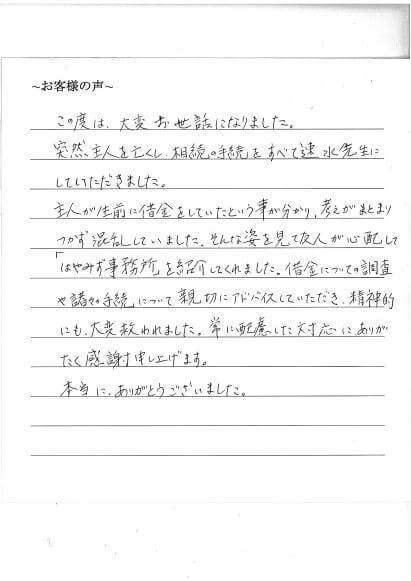 ～お客様の声～
この度は、大変お世話になりました。
突然主人を亡くし、相続の手続をすべて速水先生に
していただきました。
主人が生前に借金をしていたという事が分かり、考えがまとまり
つかず混乱していました。そんな姿を見て友人が心配して
「はやみず事務所」を紹介してくれました。借金についての調査
や諸々の手続について親切にアドバイスしていただき、精神的
にも、大変救われました。常に配慮した対応にありが
たく感謝申し上げます。
本当に、ありがとうございました。